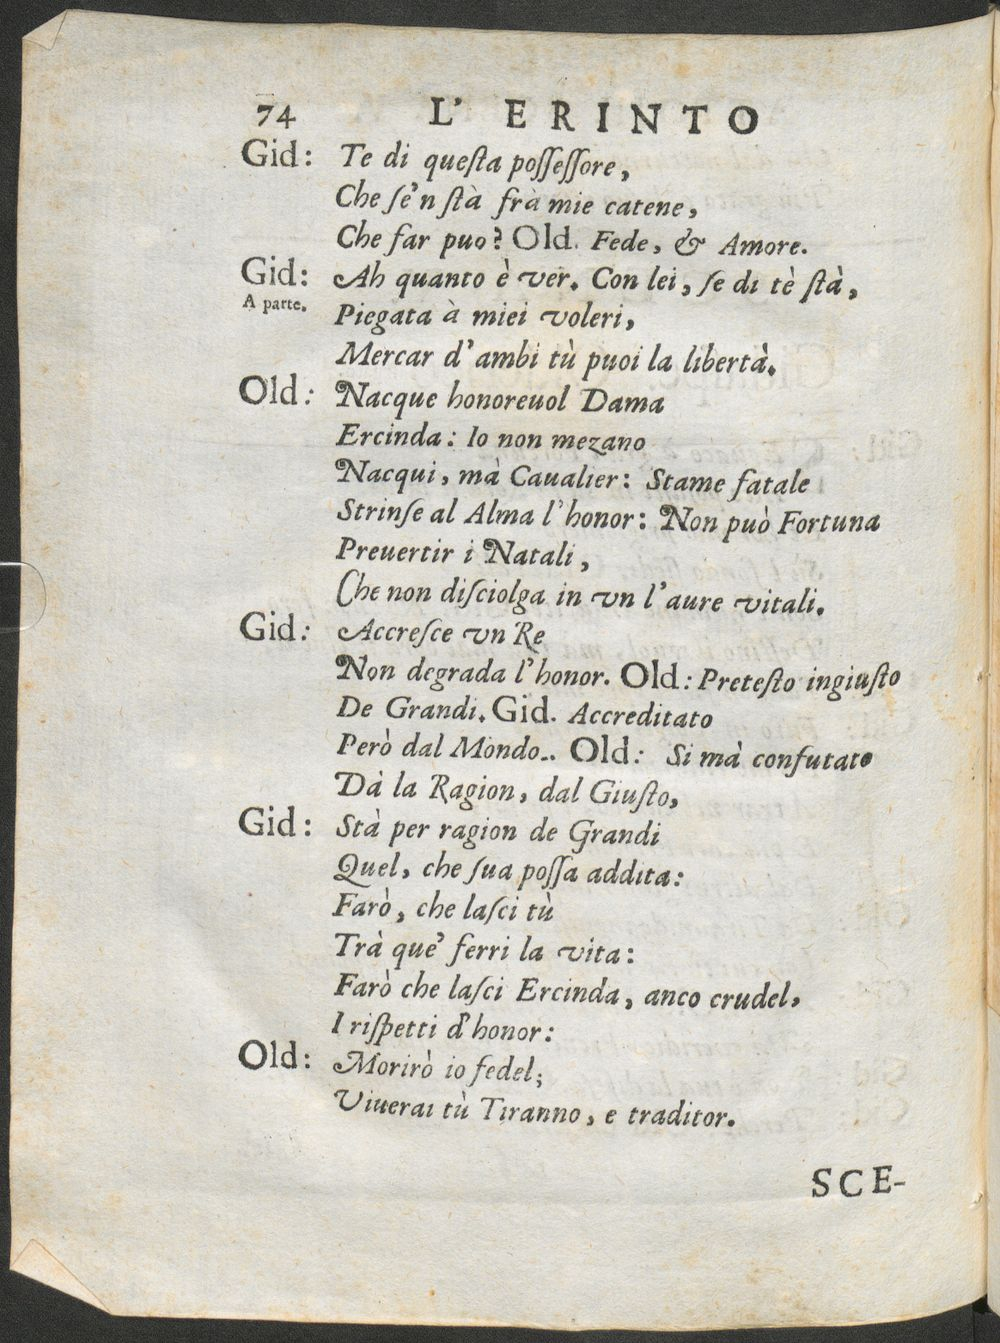 74 L' ERINTO
Gid: Te di questa possessore,
Che se'n stà frà mie catene,
Che far puo? Old. Fede, & Amore.
Gid: Ah quanto è ver. Con lei, se di tè stà,
A parte. Piegata à miei voleri,
Mercar d'ambi tù puoi la libertà.
Old: Nacque honoreuol Dama
Ercinda: Io non mezano
Nacqui, mà Caualier: Stame fatale
Strinse al Alma l'honor: Non può Fortuna
Preuertir i Natali,
Che non disciolga in vn l'aure vitali.
Gid: Accresce vn Re
Non degrada l'honor. Old: Pretesto ingiusto
De Grandi. Gid. Accreditato
Però dal Mondo.. Old: Si mà confutato
Dà la Ragion, dal Giusto,
Gid: Stà per ragion de Grandi
Quel, che sua possa addita:
Farò, che lasci tù
Trà que' ferri la vita:
Farò che lasci Ercinda, anco crudel,
I rispetti d'honor:
Old: Morirò io fedel;
Viuerai tù Tiranno, e traditor.
SCE-